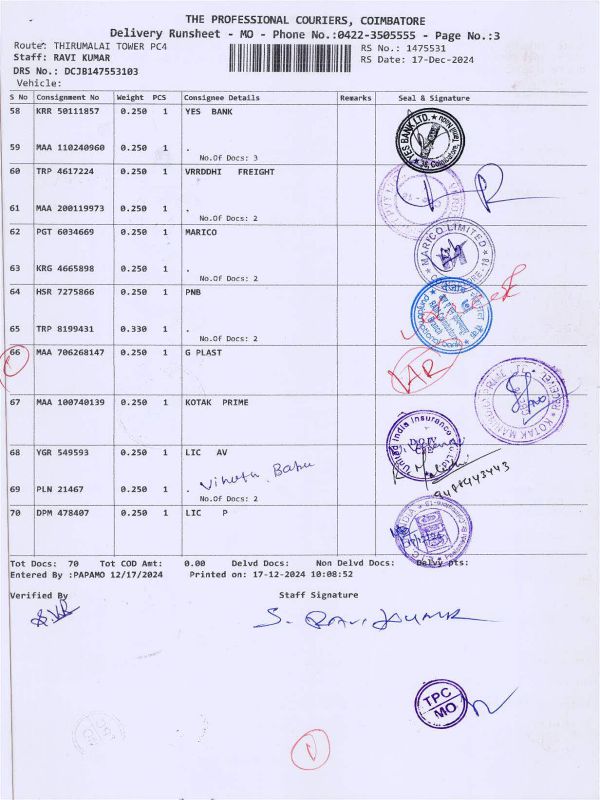 THE PROFESSIONAL COURIERS, COIMBATORE
Delivery Runsheet - MO - Phone No.:0422-3505555 - Page No.:3
Route: THIRUMALAI TOWER PC4
RS No.: 1475531
Staff: RAVI KUMAR
RS Date: 17-Dec-2024
DRS No.: DCJB147553103
Vehicle:
S No Consignment No Weight PCS Consignee Details Remarks Seal & Signature
58 KRR 50111857 0.250 1 YES BANK
59 MAA 110240960 0.250 1 .
No.Of Docs: 3
YES BANK LTD.
60 TRP 4617224 0.250 1 VRRDDHI FREIGHT
61 MAA 200119973 0.250 1 .
No.Of Docs: 2
62 PGT 6034669 0.250 1 MARICO
MARICO LIMITED
63 KRG 4665898 0.250 1 .
No.Of Docs: 2
64 HSR 7275866 0.250 1 PNB
65 TRP 8199431 0.330 1 .
No.Of Docs: 2
66 MAA 706268147 0.250 1 G PLAST
AR
67 MAA 100740139 0.250 1 KOTAK PRIME
United India Insurance
68 YGR 549593 0.250 1 LIC AV
69 PLN 21467 0.250 1 .
No.Of Docs: 2
70 DPM 478407 0.250 1 LIC P
Tot Docs: 70 Tot COD Amt: 0.00 Delvd Docs: Non Delvd Docs: Delvy pts:
Entered By :PAPAMO 12/17/2024 Printed on: 17-12-2024 10:08:52
Verified By Staff Signature
S. RAVI KUMAR
TPC
MO